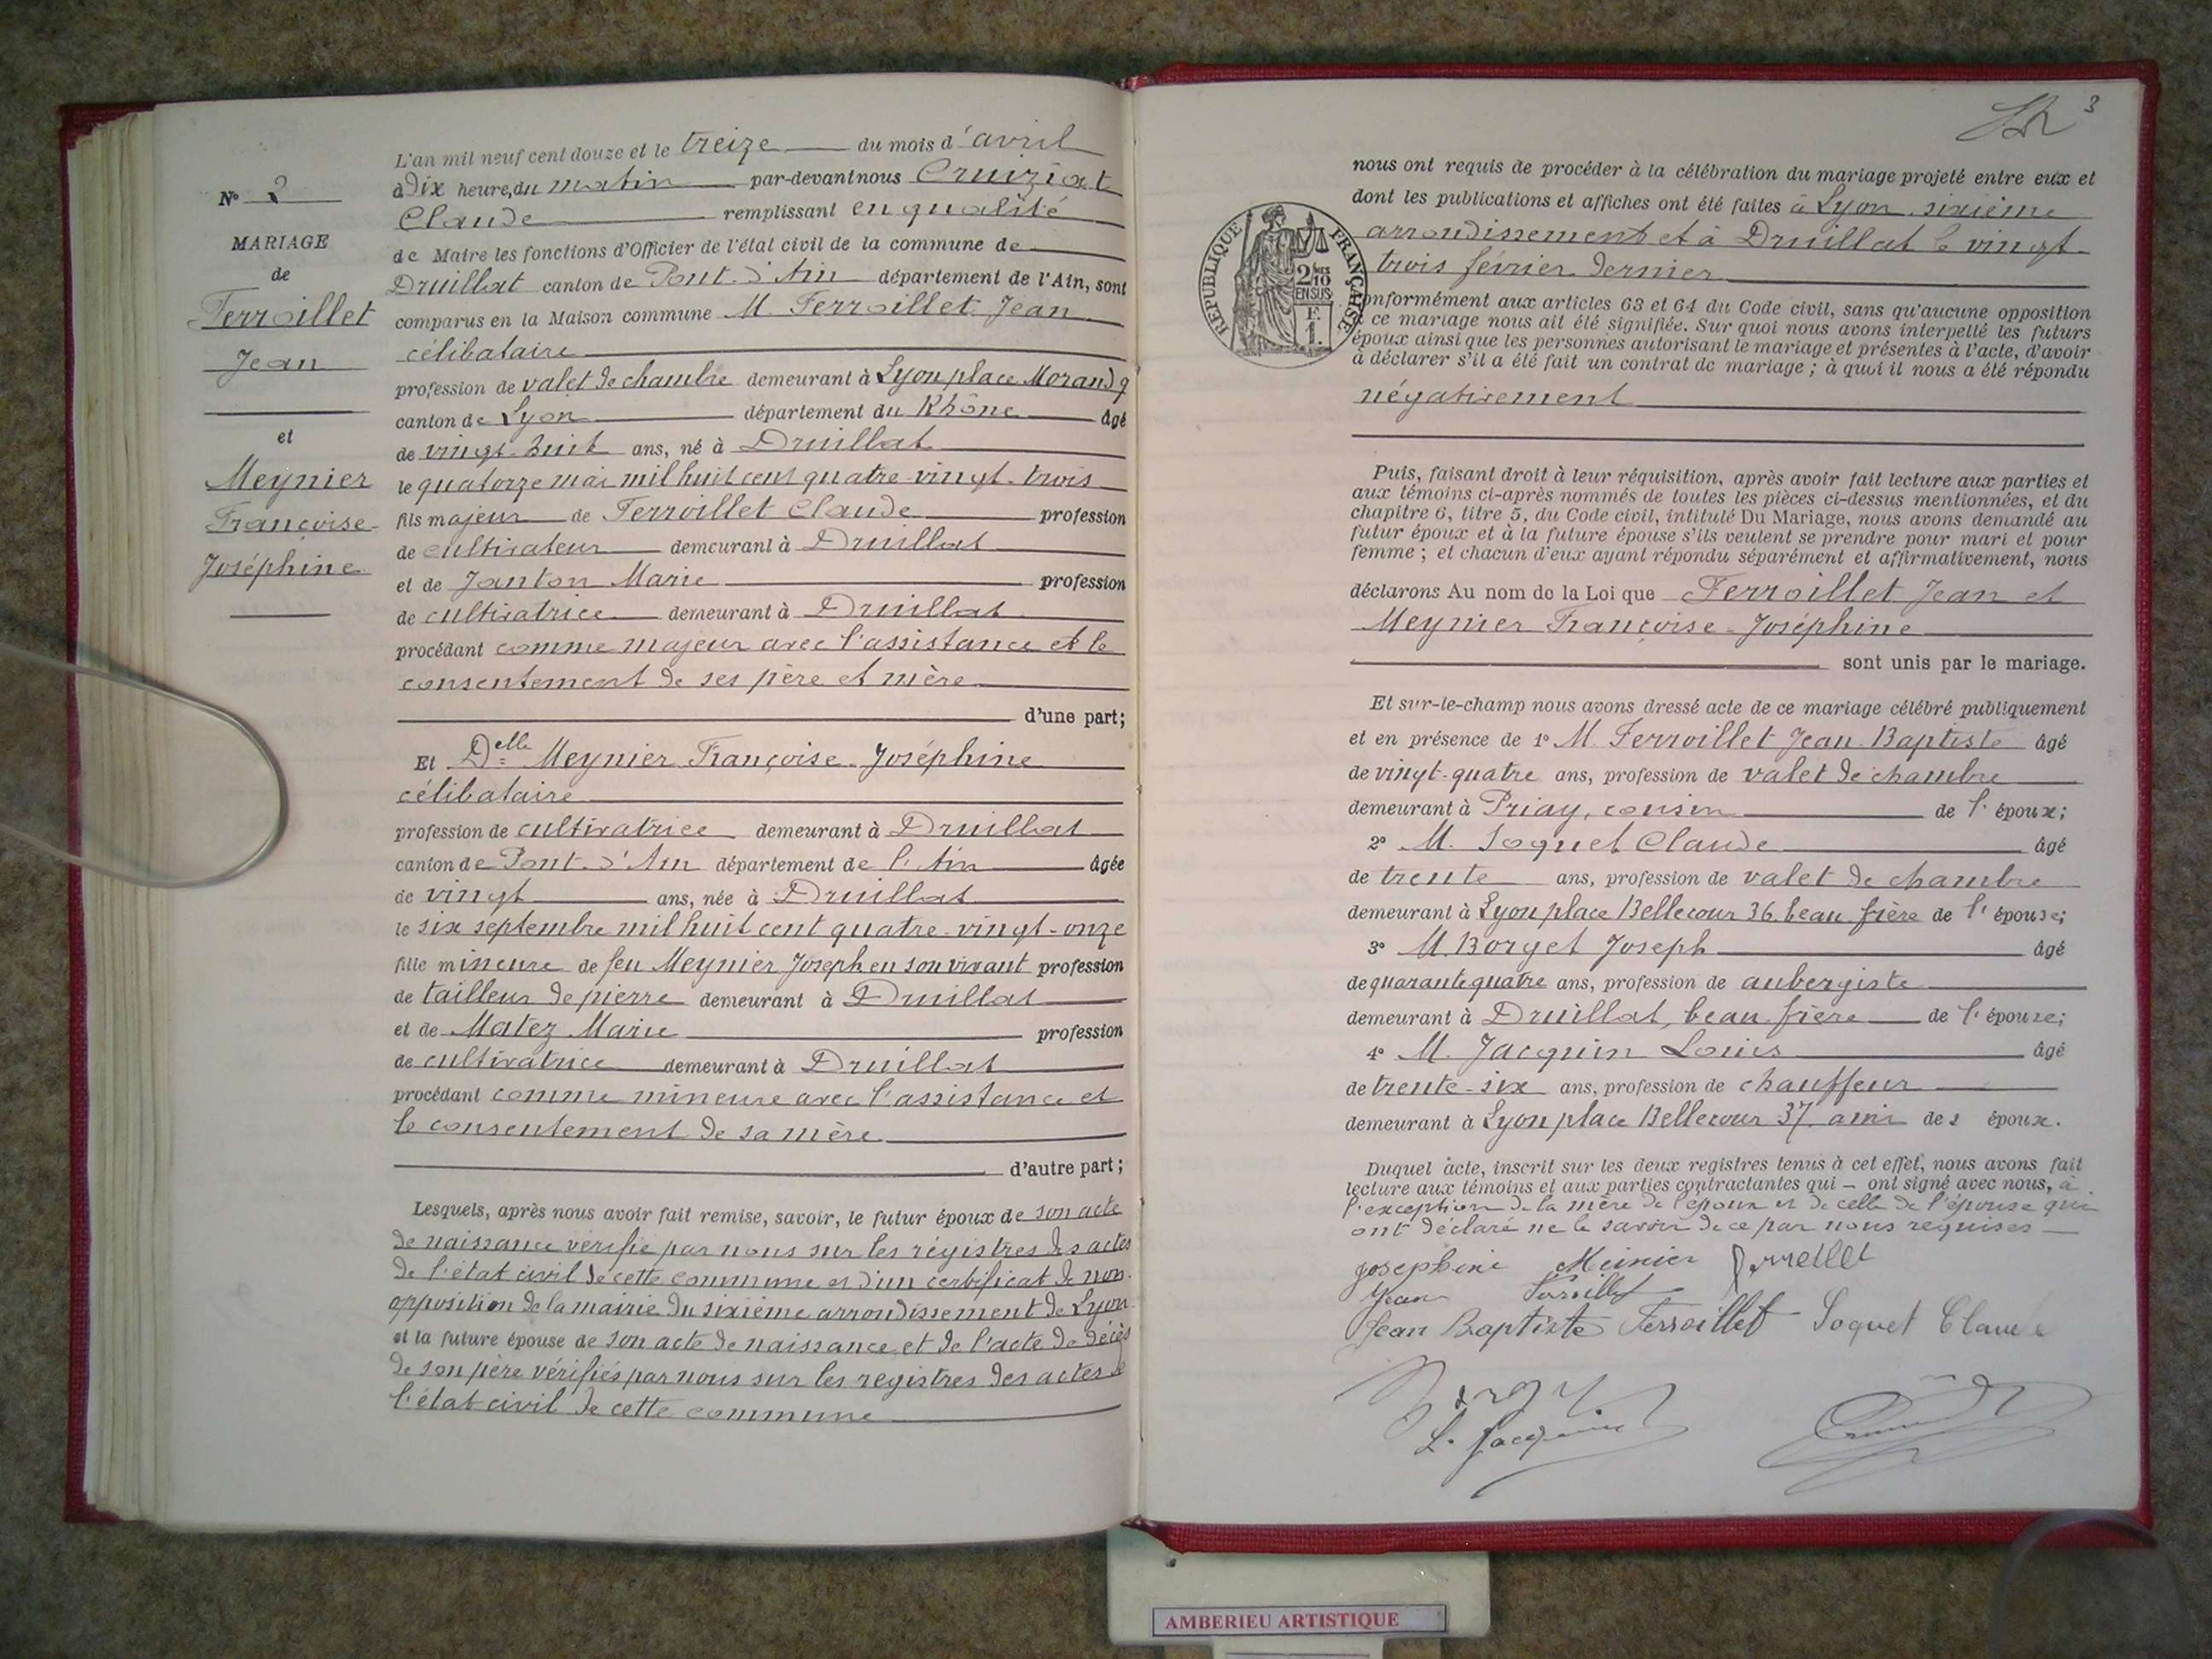 L'an mil neuf cent douze et le treize du mois d'avril
à Dix heure, du matin par-devant nous Cruiziat
Claude remplissant en qualité
de Maire les fonctions d'Officier de l'état civil de la commune de
Druillat canton de Pont-d'Ain département de l'Ain, sont
comparus en la Maison commune M. Ferroillet Jean
célibataire
profession de valet de chambre demeurant à Lyon place Morand 9
canton de Lyon département du Rhône âgé
de vingt-huit ans, né à Druillat
le quatorze mai mil huit cent quatre-vingt-trois
fils majeur de Ferroillet Claude profession
de cultivateur demeurant à Druillat
et de Janton Marie profession
de cultivatrice demeurant à Druillat
procédant comme majeur avec l'assistance et le
consentement de ses père et mère
d'une part;
Et Delle Meynier Françoise-Joséphine
célibataire
profession de cultivatrice demeurant à Druillat
canton de Pont-d'Ain département de l'Ain âgée
de vingt ans, née à Druillat
le six septembre mil huit cent quatre-vingt-onze
fille mineure de feu Meynier Joseph en son vivant profession
de tailleur de pierre demeurant à Druillat
et de Matez Marie profession
de cultivatrice demeurant à Druillat
procédant comme mineure avec l'assistance et
le consentement de sa mère
d'autre part;
Lesquels, après nous avoir fait remise, savoir, le futur époux de son acte
de naissance vérifié par nous sur les régistres des actes
de l'état civil de cette commune et d'un certificat de non-
opposition de la mairie du sixième arrondissement de Lyon
et la future épouse de son acte de naissance et de l'acte de décès
de son père vérifiés par nous sur les registres des actes de
l'état civil de cette commune
N° 2
MARIAGE
de
Ferroillet
Jean
et
Meynier
Françoise-
Joséphine
3
nous ont requis de procéder à la célébration du mariage projeté entre eux et
dont les publications et affiches ont été faites à Lyon sixième
arrondissement et à Druillat le vingt-
trois février dernier
RÉPUBLIQUE FRANÇAISE
2/10
EN SUS
F.
1.
conformément aux articles 63 et 64 du Code civil, sans qu'aucune opposition
à ce mariage nous ait été signifiée. Sur quoi nous avons interpellé les futurs
époux ainsi que les personnes autorisant le mariage et présentes à l'acte, d'avoir
à déclarer s'il a été fait un contrat de mariage ; à quoi il nous a été répondu
négativement
Puis, faisant droit à leur réquisition, après avoir fait lecture aux parties et
aux témoins ci-après nommés de toutes les pièces ci-dessus mentionnées, et du
chapitre 6, titre 5, du Code civil, intitulé Du Mariage, nous avons demandé au
futur époux et à la future épouse s'ils veulent se prendre pour mari et pour
femme ; et chacun d'eux ayant répondu séparément et affirmativement, nous
déclarons Au nom de la Loi que Ferroillet Jean et
Meynier Françoise-Joséphine
sont unis par le mariage.
Et sur-le-champ nous avons dressé acte de ce mariage célébré publiquement
et en présence de 1° M. Ferroillet Jean-Baptiste âgé
de vingt-quatre ans, profession de valet de chambre
demeurant à Priay, cousin de l'époux;
2° M. Soquet Claude âgé
de trente ans, profession de valet de chambre
demeurant à Lyon place Bellecour 36, beau frère de l'épouse;
3° M. Borget Joseph âgé
de quarante quatre ans, profession de aubergiste
demeurant à Druillat, beau frère de l'épouse;
4° M. Jacquin Louis âgé
de trente-six ans, profession de chauffeur
demeurant à Lyon place Bellecour 37, ami des époux.
Duquel acte, inscrit sur les deux registres tenus à cet effet, nous avons fait
lecture aux témoins et aux parties contractantes qui – ont signé avec nous, à
l'exception de la mère de l'époux et de celle de l'épouse qui
ont déclaré ne le savoir de ce par nous requises
josephine Meinier
Jean Ferroillet
Jean Baptiste Ferroillet Soquet Claude
L. Jacquin
AMBERIEU ARTISTIQUE